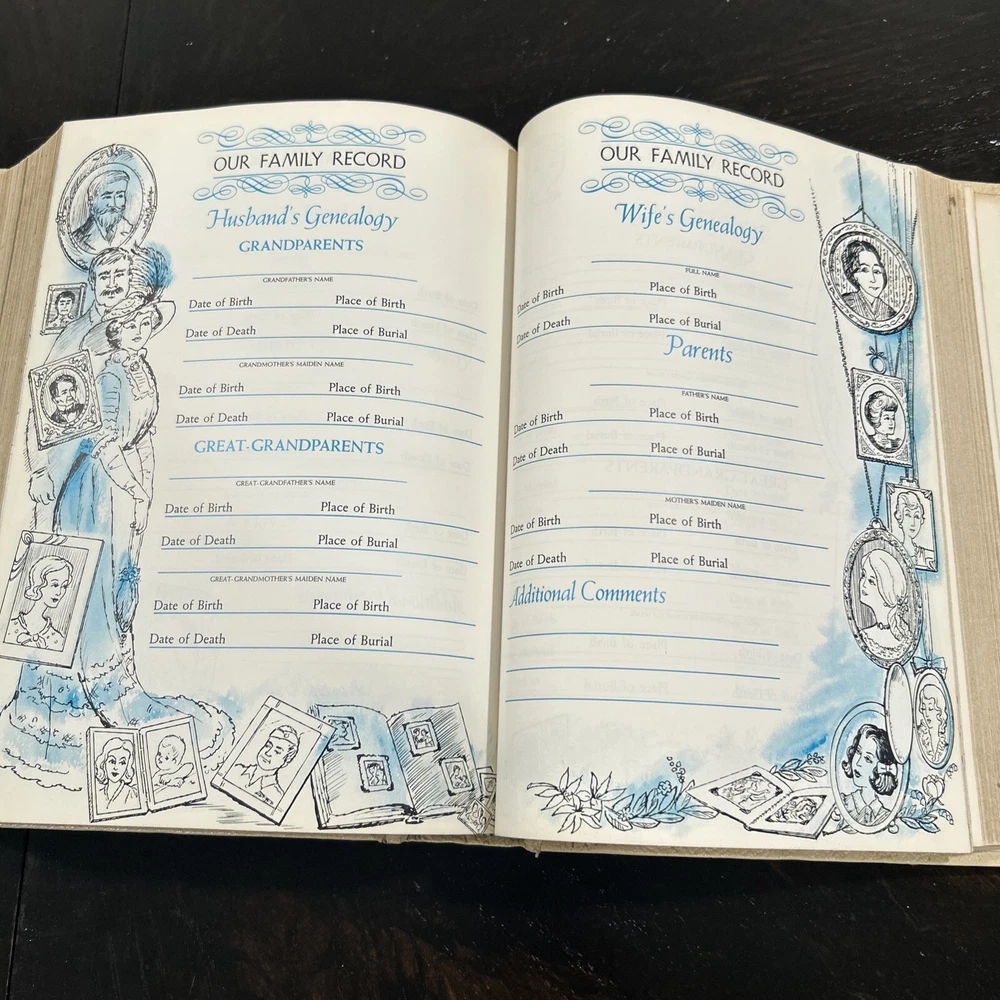 OUR FAMILY RECORD
Husband's Genealogy
GRANDPARENTS
GRANDFATHER'S NAME
Date of Birth Place of Birth
Date of Death Place of Burial
GRANDMOTHER'S MAIDEN NAME
Date of Birth Place of Birth
Date of Death Place of Burial
GREAT-GRANDPARENTS
GREAT-GRANDFATHER'S NAME
Date of Birth Place of Birth
Date of Death Place of Burial
GREAT-GRANDMOTHER'S MAIDEN NAME
Date of Birth Place of Birth
Date of Death Place of Burial
OUR FAMILY RECORD
Wife's Genealogy
FULL NAME
Date of Birth Place of Birth
Date of Death Place of Burial
Parents
FATHER'S NAME
Date of Birth Place of Birth
Date of Death Place of Burial
MOTHER'S MAIDEN NAME
Date of Birth Place of Birth
Date of Death Place of Burial
Additional Comments